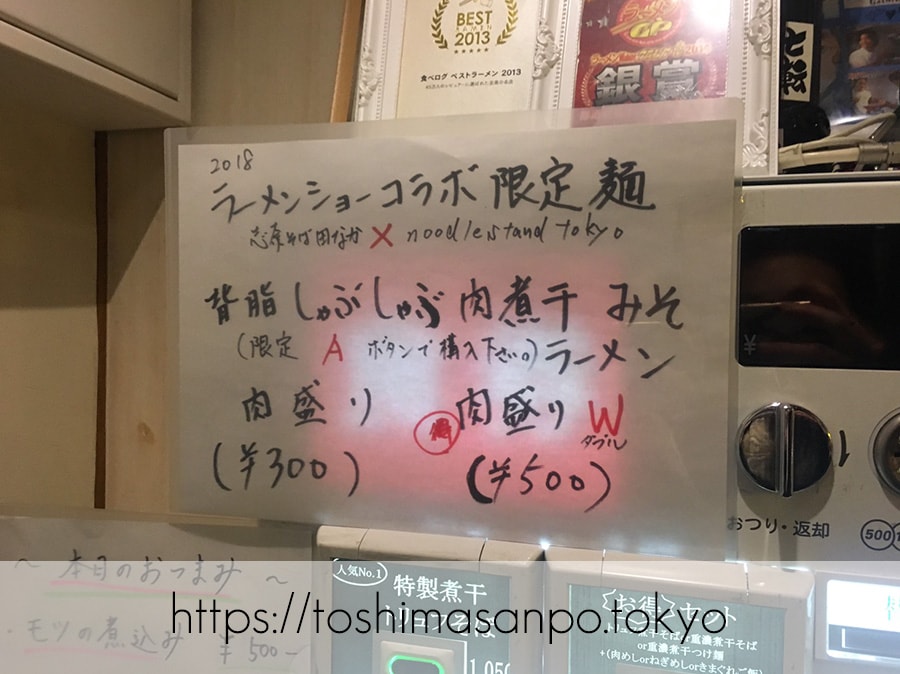 BEST
RAMEN
2013
食べログ ベストラーメン 2013
GP
銀賞
七転
2018
ラーメンショーコラボ限定麺
志奈そば田なか × noodle stand tokyo
背脂しゃぶしゃぶ肉煮干 みそ
(限定 A ボタンで購入下さい。)ラーメン
肉盛り
(¥300)
得 肉盛り W
ダブル
(¥500)
¥
おつり・返却
500
～ 本日のおつまみ ～
・モツの煮込み ¥500-
人気No.1
特製煮干
1,050
お得
or重濃煮干つけ麺
+(肉めしorねぎめしorきまぐれご飯)
https://toshimasanpo.tokyo